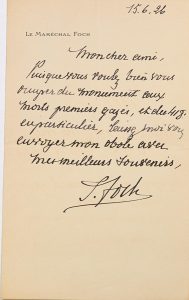 15.6.26
LE MARÉCHAL FOCH
Mon cher ami,
Puisque vous voulez bien vous
occuper du monument aux
morts premiers gazés, et des
en particulier, laissez moi vous
envoyer mon obole avec
mes meilleurs souvenirs,
F. Foch